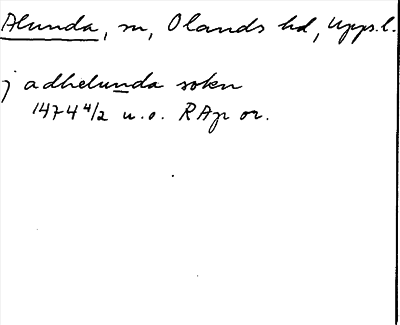 Alunda, sn, Olands hd, Upps. l.
j adhelunda sokn
1474 4/2 u.o. RAp or.